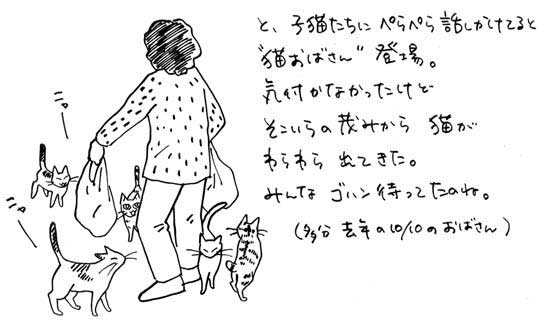 と、子猫たちに ぺらぺら 話しかけてると
"猫おばさん" 登場。
気付かなかったけど
そこいらの茂みから 猫が
わらわら 出てきた。
みんな ゴハン待ってたのね。
(多分 去年の10/10のおばさん)
ニャ
ニャ